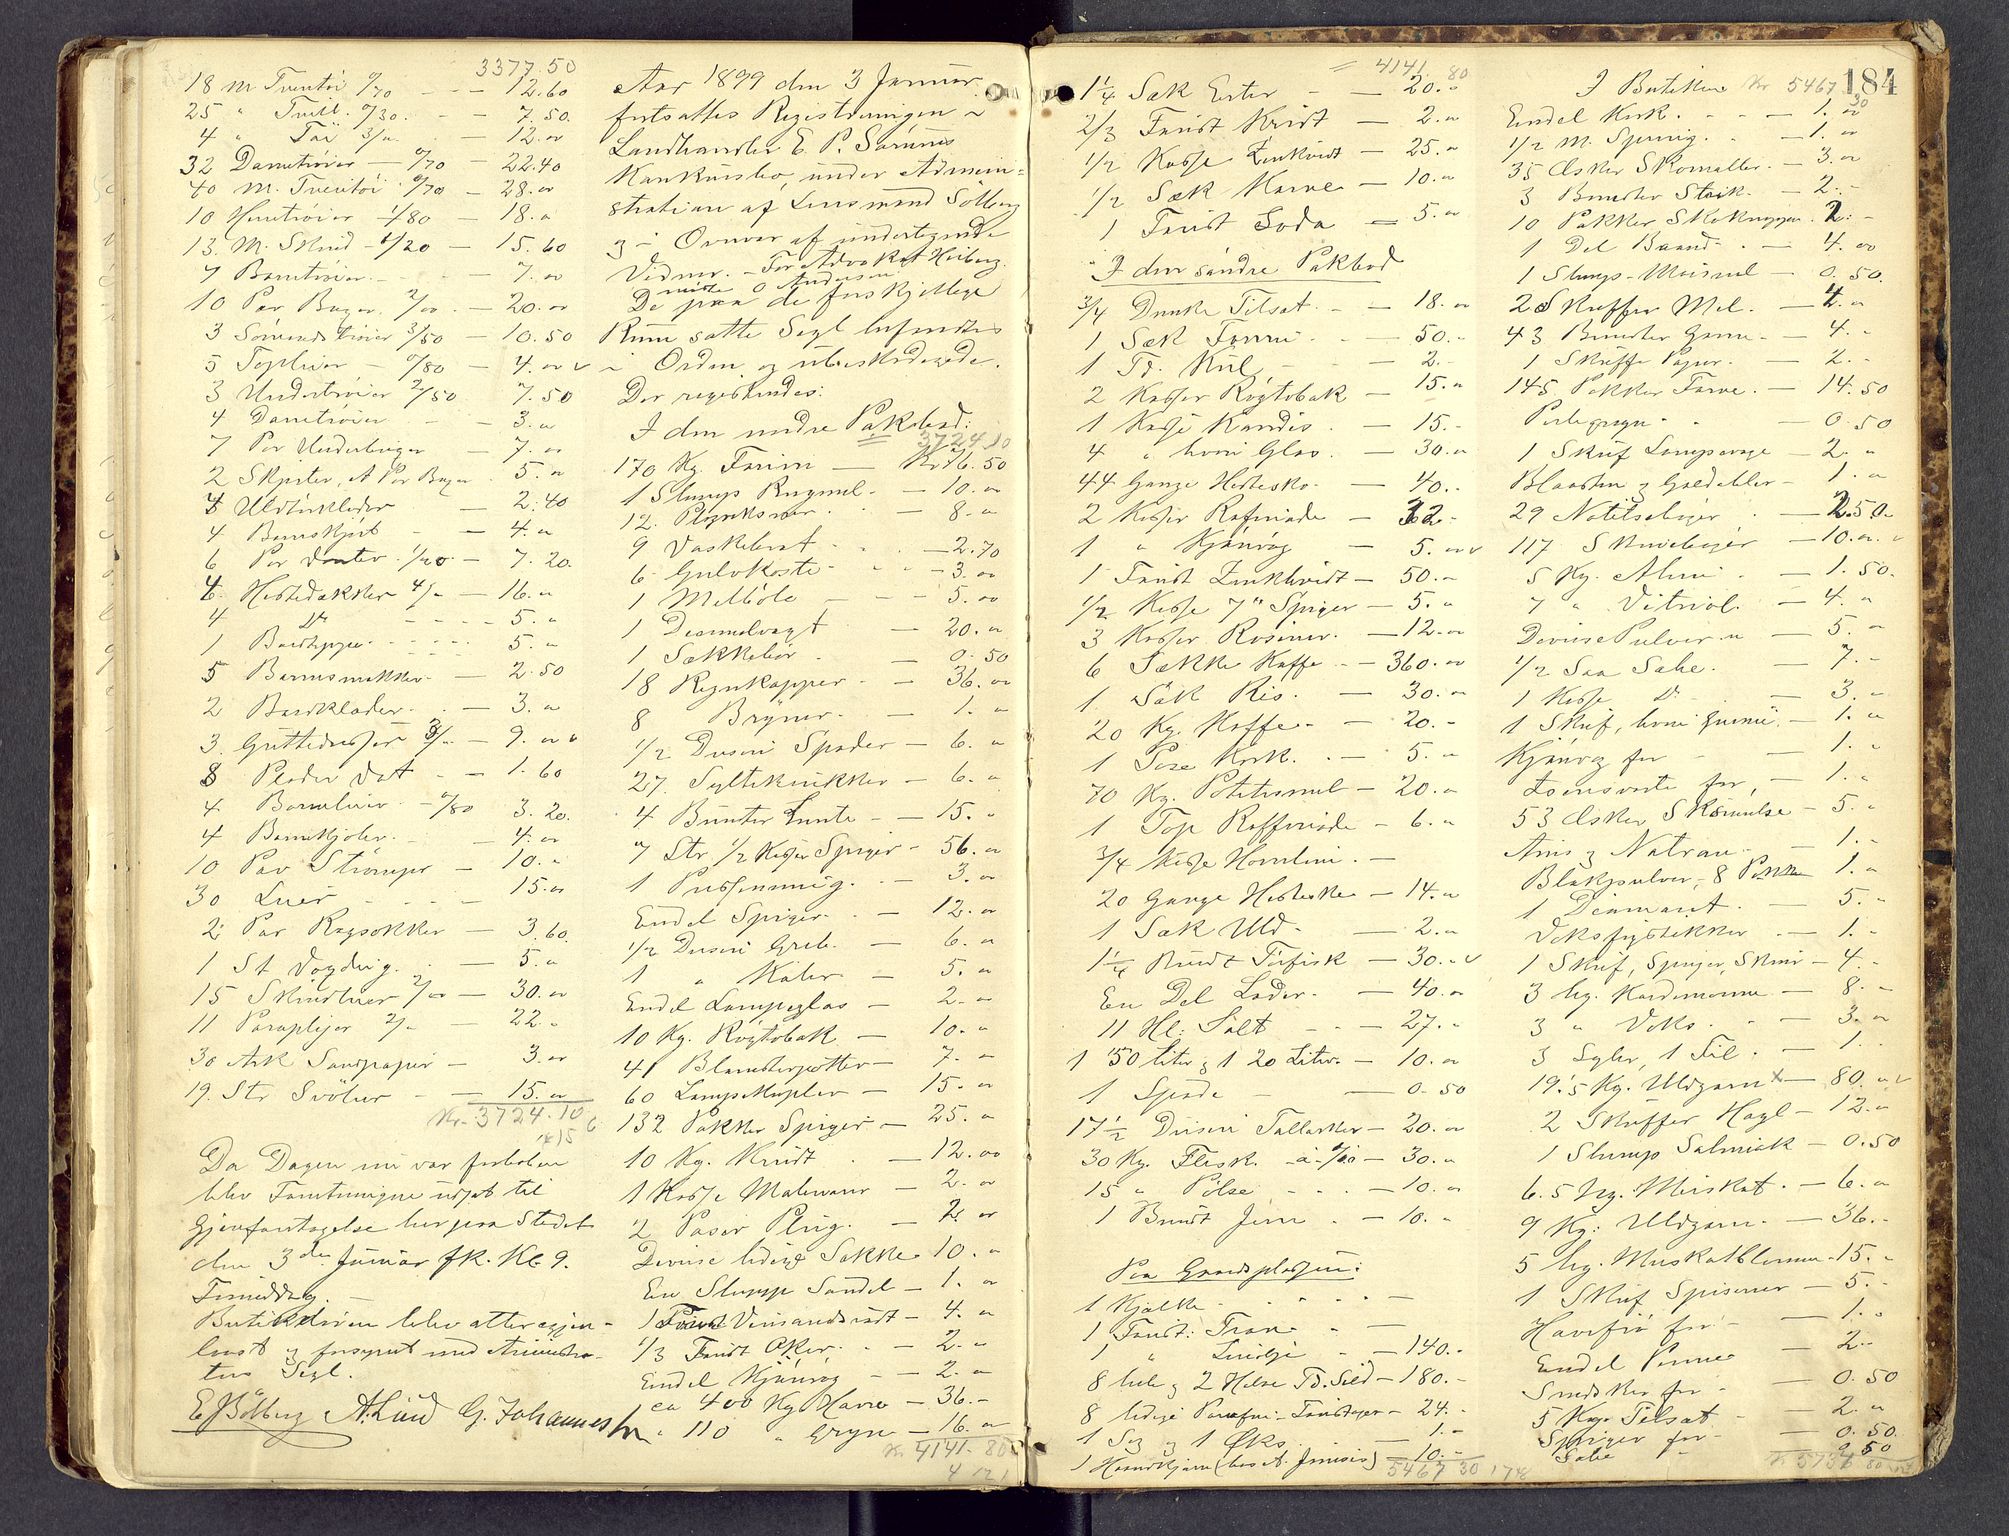 3377.50
18 m Tventöi 0/70 - - - 12.60
25 " Tvill. 0/30. - - 7.50.
4 " Töi 3/„ - 12.00
32 Dametröier - 0/70 - 22.40
40 m. Tventöi 0/70 - 28.00
10 Herretröier 1/80 - 18.„
13. m. Skind - 1/20 - 15.60
7 Barnetröier - - 7.00
10 Par Buxer. 2/00. - 20.00
3 Sömandströier 3/50 - 10.50
5 Topluer - 0/80 - 4.00
3 Undertröier 2/50 7.50
4 Dametröier - - 3.„
7 Par Underbuxer - 7.„
2 Skjorter, 1 Par Buxer - 5.„
8 Uldtörklæder - 2.40
4 Barneskjört - - 4.„
6 Par Vanter. 1/20 - 7.20.
4 Hestedækker 4/„ - 16.„
4 Do - - - - 5.„
1 Bordteppe - - - - 5.„
5 Barnesmækker. - 2.50
2 Bordklæder. - 3.„
3. Guttedresser 3/„ - 9.00
8 Plader Vat - - 1.60
4. Barneluer. - 0/80 3.20.
4 Barnekjoler. - 4.00
10 Par Strömper - 10.„
30 Luer - - - 15.00
2 Par Ragsokker - 3.60.
1 St. Vogdug. - 5.„
15 Skindluer 2/00 - 30.00
11 Paraplyer 2/„ - 22.„
30 Ark Sandpapir - 3.00
19. Str Svöber - - 15.00
Kr. 3724.10
Da Dagen nu var forloben
blev Forretningen udsat til
Gjenforetagelse her paa Stedet
den 3die Januar fk. Kl. 9.
Formiddag. -
Butikdören blev atter igjen-
laast og forsynet med Administra-
tors Segl.
E Sölberg A. Lund G. Johannessen
Aar 1899 den 3 Januar
fortsattes Registreringen i
Landhandler E. P. Sörnnis
Konkursbo, under Admini=
stration af Lensmand Sölberg
og i Overvær af undertegnede
Vidner. - For Advokat Heiberg
mötte O Andersen
De paa de forskjellige
Rum satte Segl befandtes
i Orden og ubeskadigede.
Der registreredes:
I den nedre Pakbod:
3724.10
170 Kg. Farin - Kr 76.50
1 Slump Rugmel. - 10.00
12. - 8.„
9 Vaskebret - - - 2.70
6 Gulvkoste - - - 3.00
1 Melbøle - - - 5.00
1 Decimalvægt - 20.„
1 Sækkebör. - 0.50
18 Regnkapper - - 36.00
8 Bryner. - 1.„
1/2 Dusin Spader - 6.„
27. Syltekrukker - 6.„
4 Bunter Lunte - - 15.„
7 Str. 1/2 Kasser Spiger - 56.„
1 - 3.„
Endel Spiger. - 12.„
1/2 Dusin Greb. - 6.„
1 " - 5.„
Endel Lampeglas - 2.„
10 Kg. Røgtobak - 10.„
41 Blomsterpotter - 7.„
60 Lampekupler - 15.„
132 Pakker Spiger - 25.„
10 Kg. Krudt - 12.00
1 Kasse Malervarer - 2.„
2 Poser Plug. - 2.00
Diverse ledige Sække 10.„
En Slump Sandel - 1.„
1 Fustd Vensianskrödt - 4.„
1/3 Fustd Oker. - - 2.„
Endel Kjönrög - - 2.„
ca 400 Kg Havre - 36.„
" 110 " Gryn - 16.„
Kr 4141.80
4141.80
1 1/4 Sæk Erter - - 20.„
2/3 Fustd Kridt - 2.„
1/2 Kasse Zinkhvidt - 25.„
1/2 Sæk Karve - 10.„
1 Fustd Soda - 5.„
I den söndre Pakbod
3/4 Dunke Tilsat. - - 18.„
1 Sæk Farin - - 50.„
1 Td. Kul - - 2.„
2 Kasser Røgtobak - 15.„
1 Kasse Kandis. - 15.„
4 " hvori Glas. - 30.„
44 Gange Hestesko. - 40.„
2 Kasser Rafinade - 32.„
1 " Kjönrög - 5.00
1 Fustd Zinkhvidt - 50.„
1/2 Kasse 7" Spiger - 5.„
3 Kasser Rosiner. - 12.„
6 Sække Kaffe - - 360.„
1 Säk Ris. - 30.„
20 Kg. Kaffe - - 20.„
1 Pose Kork. - - 5.„
70 Kg. Potetesmel - 20.„
1 Top Raffinade - 6.„
3/4 Kasse -
20 Gange Hestesko - 14.„
1 Sæk Uld. - 2.„
1 1/4 Bundt Törfisk - 30.„
En Del Læder. - 40.„
11 Hl. Salt - - - 27.„
1 50 Liter og 1 20 Liter. - 10.„
1 Spade - - 0.50
17 1/2 Dusin Tallerker - 20.„
30 Kg. Flesk. à - 30.„
15 " Pölse - - - 10.„
1 Bundt Jern - - 10.„
Paa Gaardspladsen:
1 Kjælke - - - -
1 Fustd. Tran - -
1 " Linolje - - 140.„
8 hele og 2 Halve Td. Sild - 180.„
8 ledige Parafin-Fustager - 24.„
1 Sag og 1 Øks. - 1.„
1 Haandkjærre (hos A. Jensen) - 10.„
5467 30
184
I Butiken Kr 5467 30
Endel Kork. - - 1.„
1/2 m. Spunig. - - 1.„
35 Æsker Skomaller. - 3.„
3 Bunter Strik. - 2.„
10 Pakker Skoknapper. 2.„
1 Del Baand. - 4.00
1 Slump Maismel - 0.50.
2 Skuffer Mel. - 4.„
43 Bunter Garn. - 4.„
1 Skuffe Papir. - 2.„
145 Pakker Farve. - 14.50
Perlegryn - - 0.50
1 Skuf Lampevæge - 2.„
Blaasten og Galdebler - 1.„
29 Notitsböger - 2.50
117 Skrivebøger - 10.„
5 Kg. Alun - 1.50.
7 " Vitriol. - 4.„
Diverse Pulver - 5.„
1/2 Saa Sæbe. - 7.„
1 Kasse Do. - 3.„
1 Skuf, hvori Gummi. - 1.„
Kjönrög for - - 1.„
for - 1.„
53 Æsker Skosmelse - 5.„
Anis og Natron - - 1.„
Blækpulver, 8 Pakker 1.„
1 Diamant. - 5.„
Voksfyrstikker - 1.„
1 Skuf, Spiger, Skruer - 4.„
3 hg. Kardemomme - 8.„
3 " Voks. - - 3.„
3 Syler, 1 Fil. - 1.„
19.5 Kg. Uldgarn - 80.„
2 Skuffer Hagl - 12.„
1 Slump Salmiak - 0.50
6.5 hg. Muskat. - 6.„
9 Kg. Uldgarn. - 36.„
5 hg. Muskatblomme - 15.„
1 Skuf - 5.„
Havefrö for - 1.„
Endel Penne - 2.„
for - 0.50
5 Kg. Tilsat. - 2.„
Spiger for - 0.50.
Sæbe " 9.50
Kr 5736 80